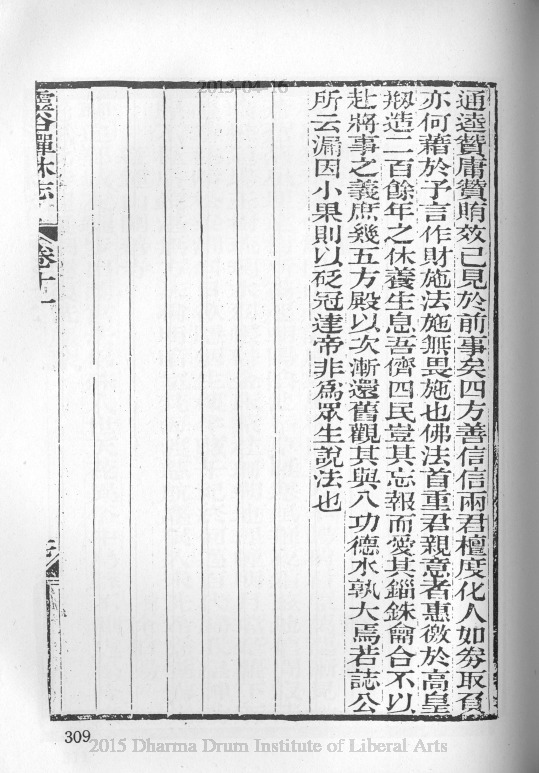 2015-04-16
通逵贊庸贊賄效已見於前事矣四方善信信兩君檀度化人如券取負
亦何藉於予言作財施法施無畏施也佛法首重君親意者惠徼於高皇
剏造二百餘年之休養生息吾儕四民豈其忘報而愛其錙銖龠合不以
赴將事之義庶幾五方殿以次漸還舊觀其與八功德水孰大焉若誌公
所云漏因小果則以砭冠達帝非爲眾生說法也
靈谷禪林志 卷十一
309
2015 Dharma Drum Institute of Liberal Arts